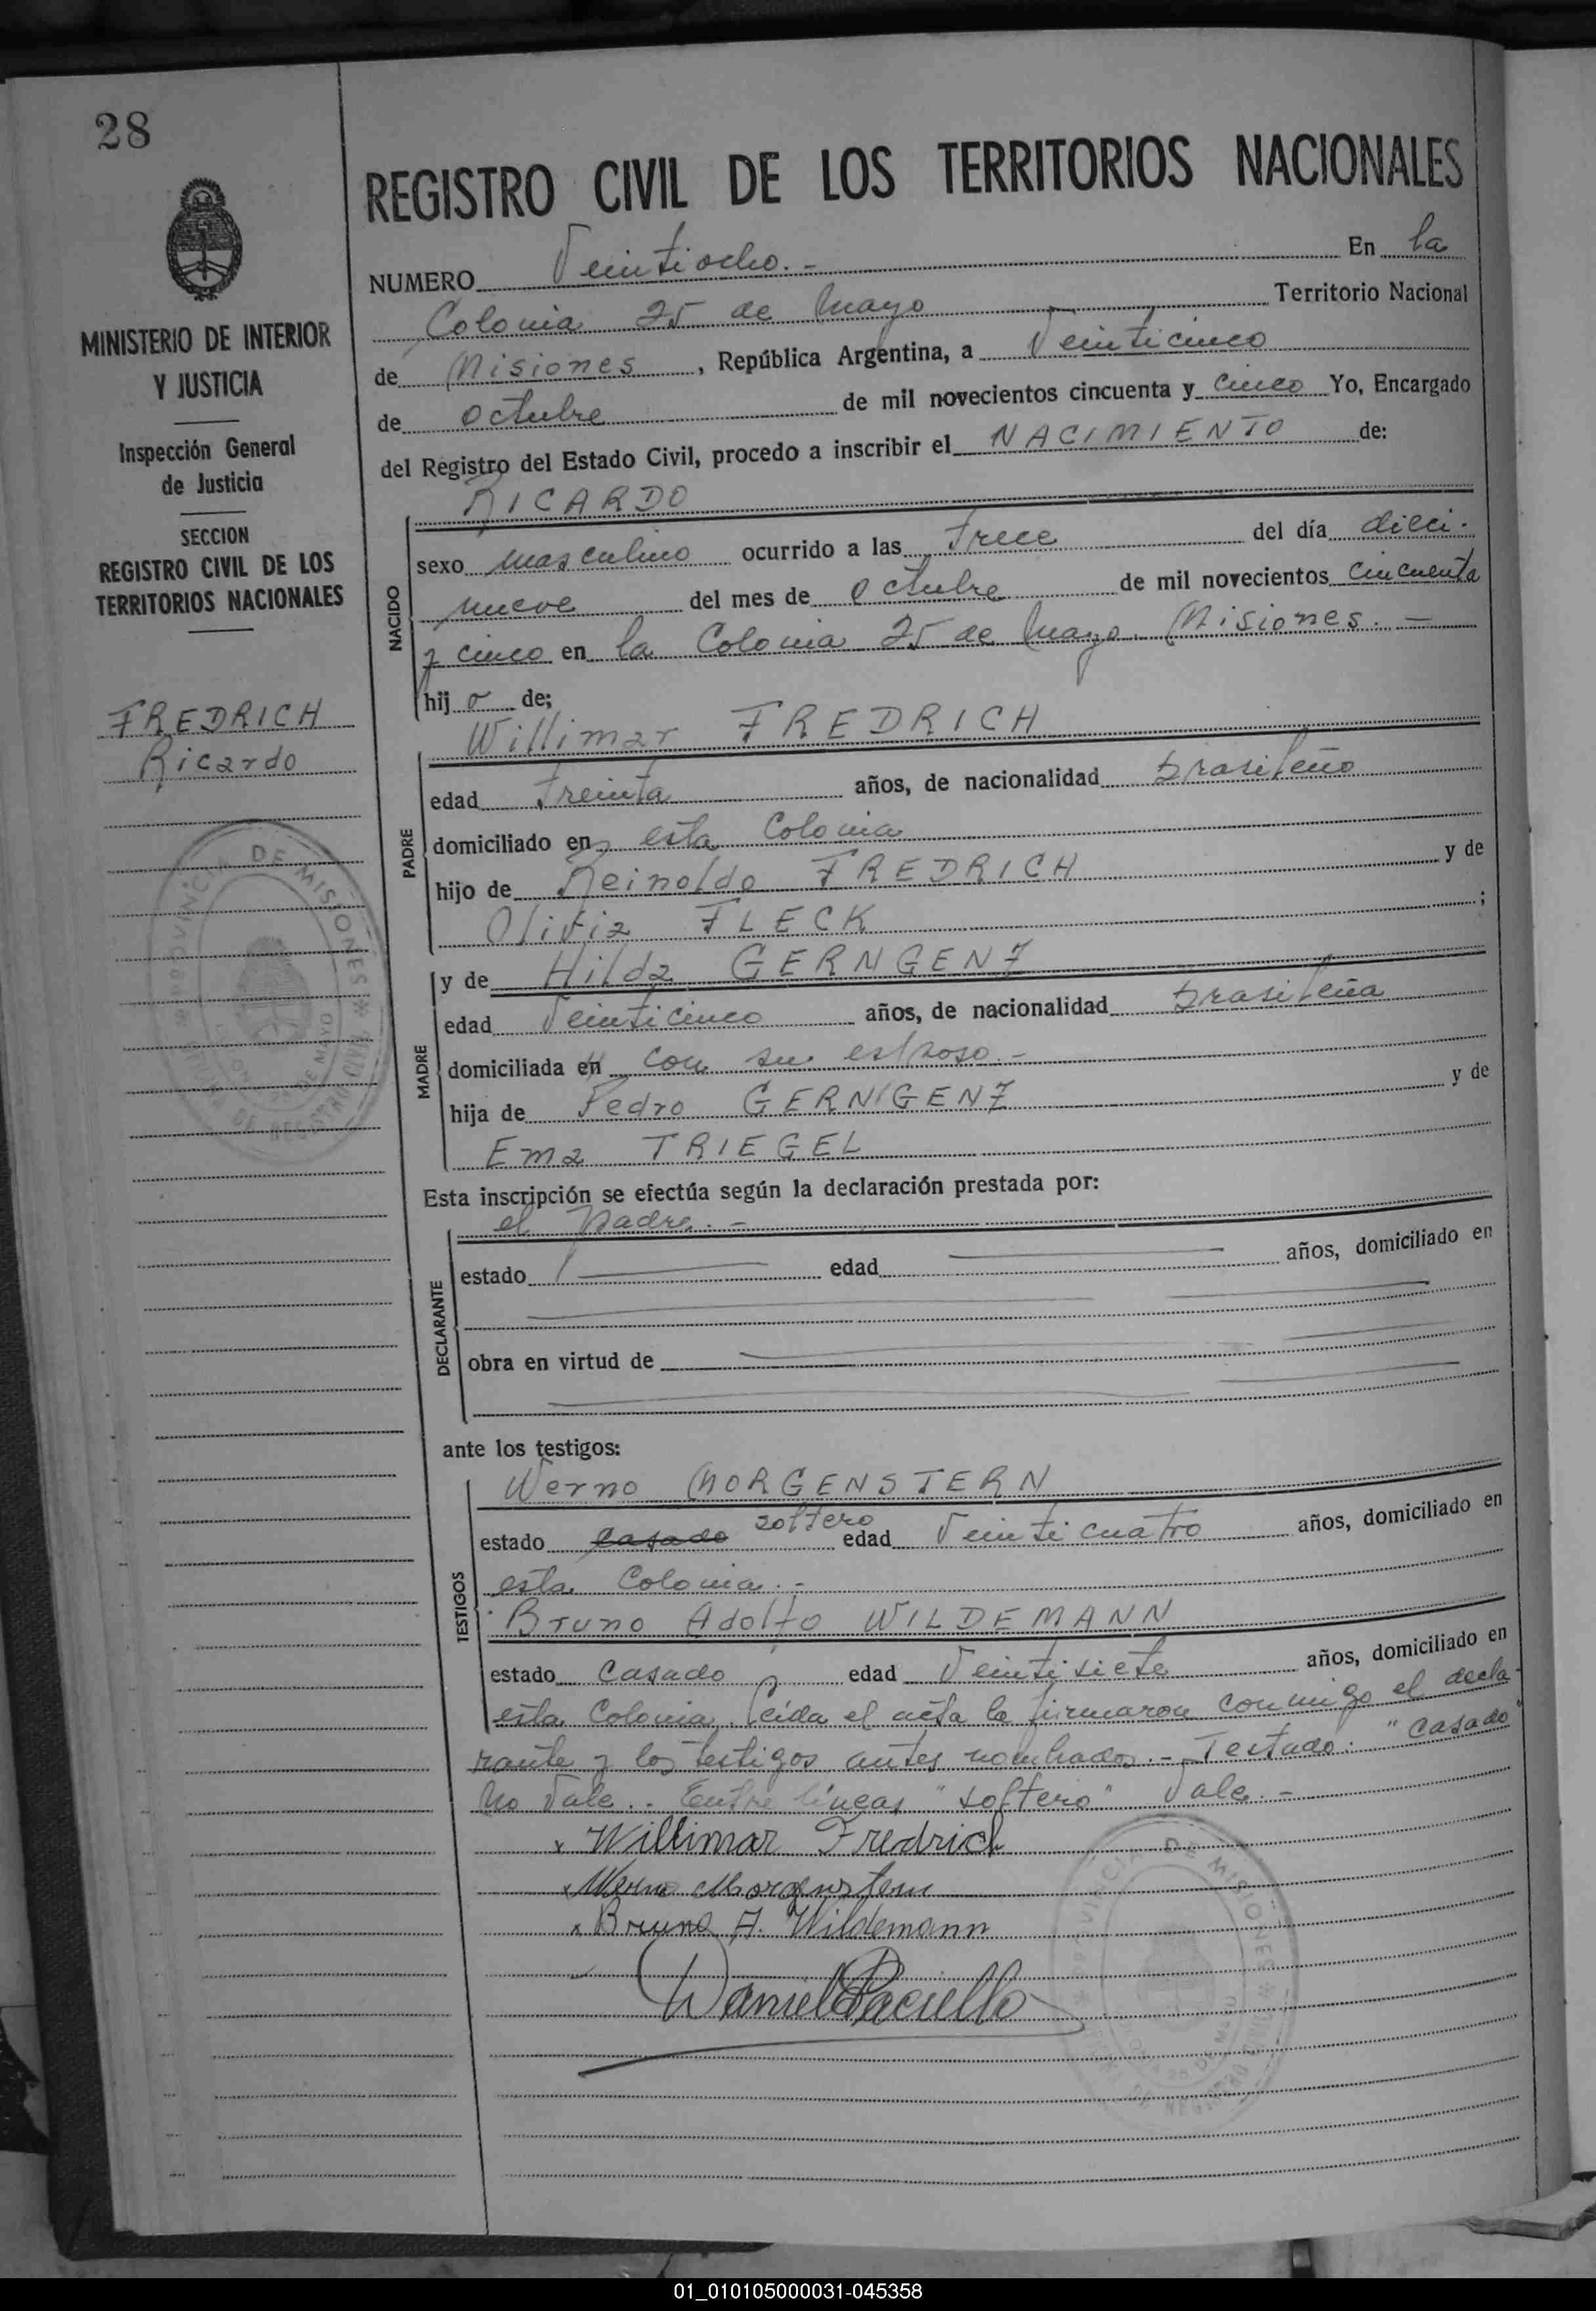 28
REGISTRO CIVIL DE LOS TERRITORIOS NACIONALES
MINISTERIO DE INTERIOR
Y JUSTICIA
Inspección General
de Justicia
SECCION
REGISTRO CIVIL DE LOS
TERRITORIOS NACIONALES
FREDRICH
Ricardo
PROVINCIA DE MISIONES
NUMERO Veintiocho.- En la
Colonia 25 de Mayo Territorio Nacional
de Misiones, República Argentina, a Veinticinco
de octubre de mil novecientos cincuenta y cinco Yo, Encargado
del Registro del Estado Civil, procedo a inscribir el NACIMIENTO de:
RICARDO
NACIDO
sexo masculino ocurrido a las trece del día dieci-
nueve del mes de octubre de mil novecientos cincuenta
y cinco en la Colonia 25 de Mayo. Misiones.-
hijo de;
PADRE
Willimar FREDRICH
edad treinta años, de nacionalidad brasileño
domiciliado en esta Colonia
hijo de Reinoldo FREDRICH y de
FLECK ;
MADRE
y de Hilda GERNGENZ
edad Veinticinco años, de nacionalidad brasileña
domiciliada en con su esposo.-
hija de Pedro GERNGENZ y de
Ema TRIEGEL
Esta inscripción se efectúa según la declaración prestada por:
DECLARANTE
el padre.-
estado edad años, domiciliado en
obra en virtud de
ante los testigos:
TESTIGOS
Werno MORGENSTERN
estado casado soltero edad Veinticuatro años, domiciliado en
esta Colonia.-
Bruno Adolfo WILDEMANN
estado casado edad Veintisiete años, domiciliado en
esta Colonia. Leída el acta la firmaron conmigo el decla-
rante y los testigos antes nombrados.- Testado: "casado"
No Vale.- Entre líneas "soltero" Vale.-
x Willimar Fredrich
x Werno Morgenstern
x Bruno A. Wildemann
Daniel Paciello
PROVINCIA DE MISIONES
01_010105000031-045358